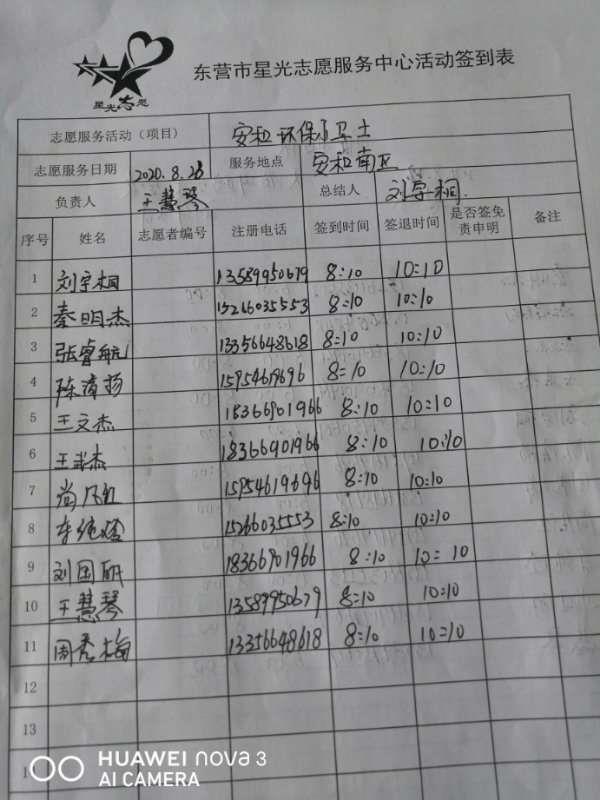 星光志愿
东营市星光志愿服务中心活动签到表
志愿服务活动（项目） 安和环保小卫士
志愿服务日期 2020.8.23 服务地点 安和南区
负责人 王慧琴 总结人 刘宇桐
序号 姓名 志愿者编号 注册电话 签到时间 签退时间 是否签免责申明 备注
1 刘宇桐 13589950679 8:10 10:10
2 秦明杰 15266035553 8:10 10:10
3 张睿航 13356648618 8:10 10:10
4 陈漳扬 15954619696 8:10 10:10
5 王文杰 18366901966 8:10 10:10
6 王 杰 18366901966 8:10 10:10
7 尚 15954619696 8:10 10:10
8 15266035553 8:10 10:10
9 刘国研 18366901966 8:10 10:10
10 王慧琴 13589950679 8:10 10:10
11 周秀梅 13356648618 8:10 10:10
12
13
HUAWEI nova 3
AI CAMERA